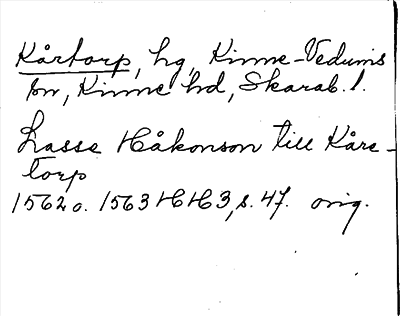 Kårtorp, hg, Kinne-Vedums
sn, Kinne hd, Skarab. l.
Lasse Håkonson till Kårs-
torp
1562 o. 1563 HH3, s. 47. orig.